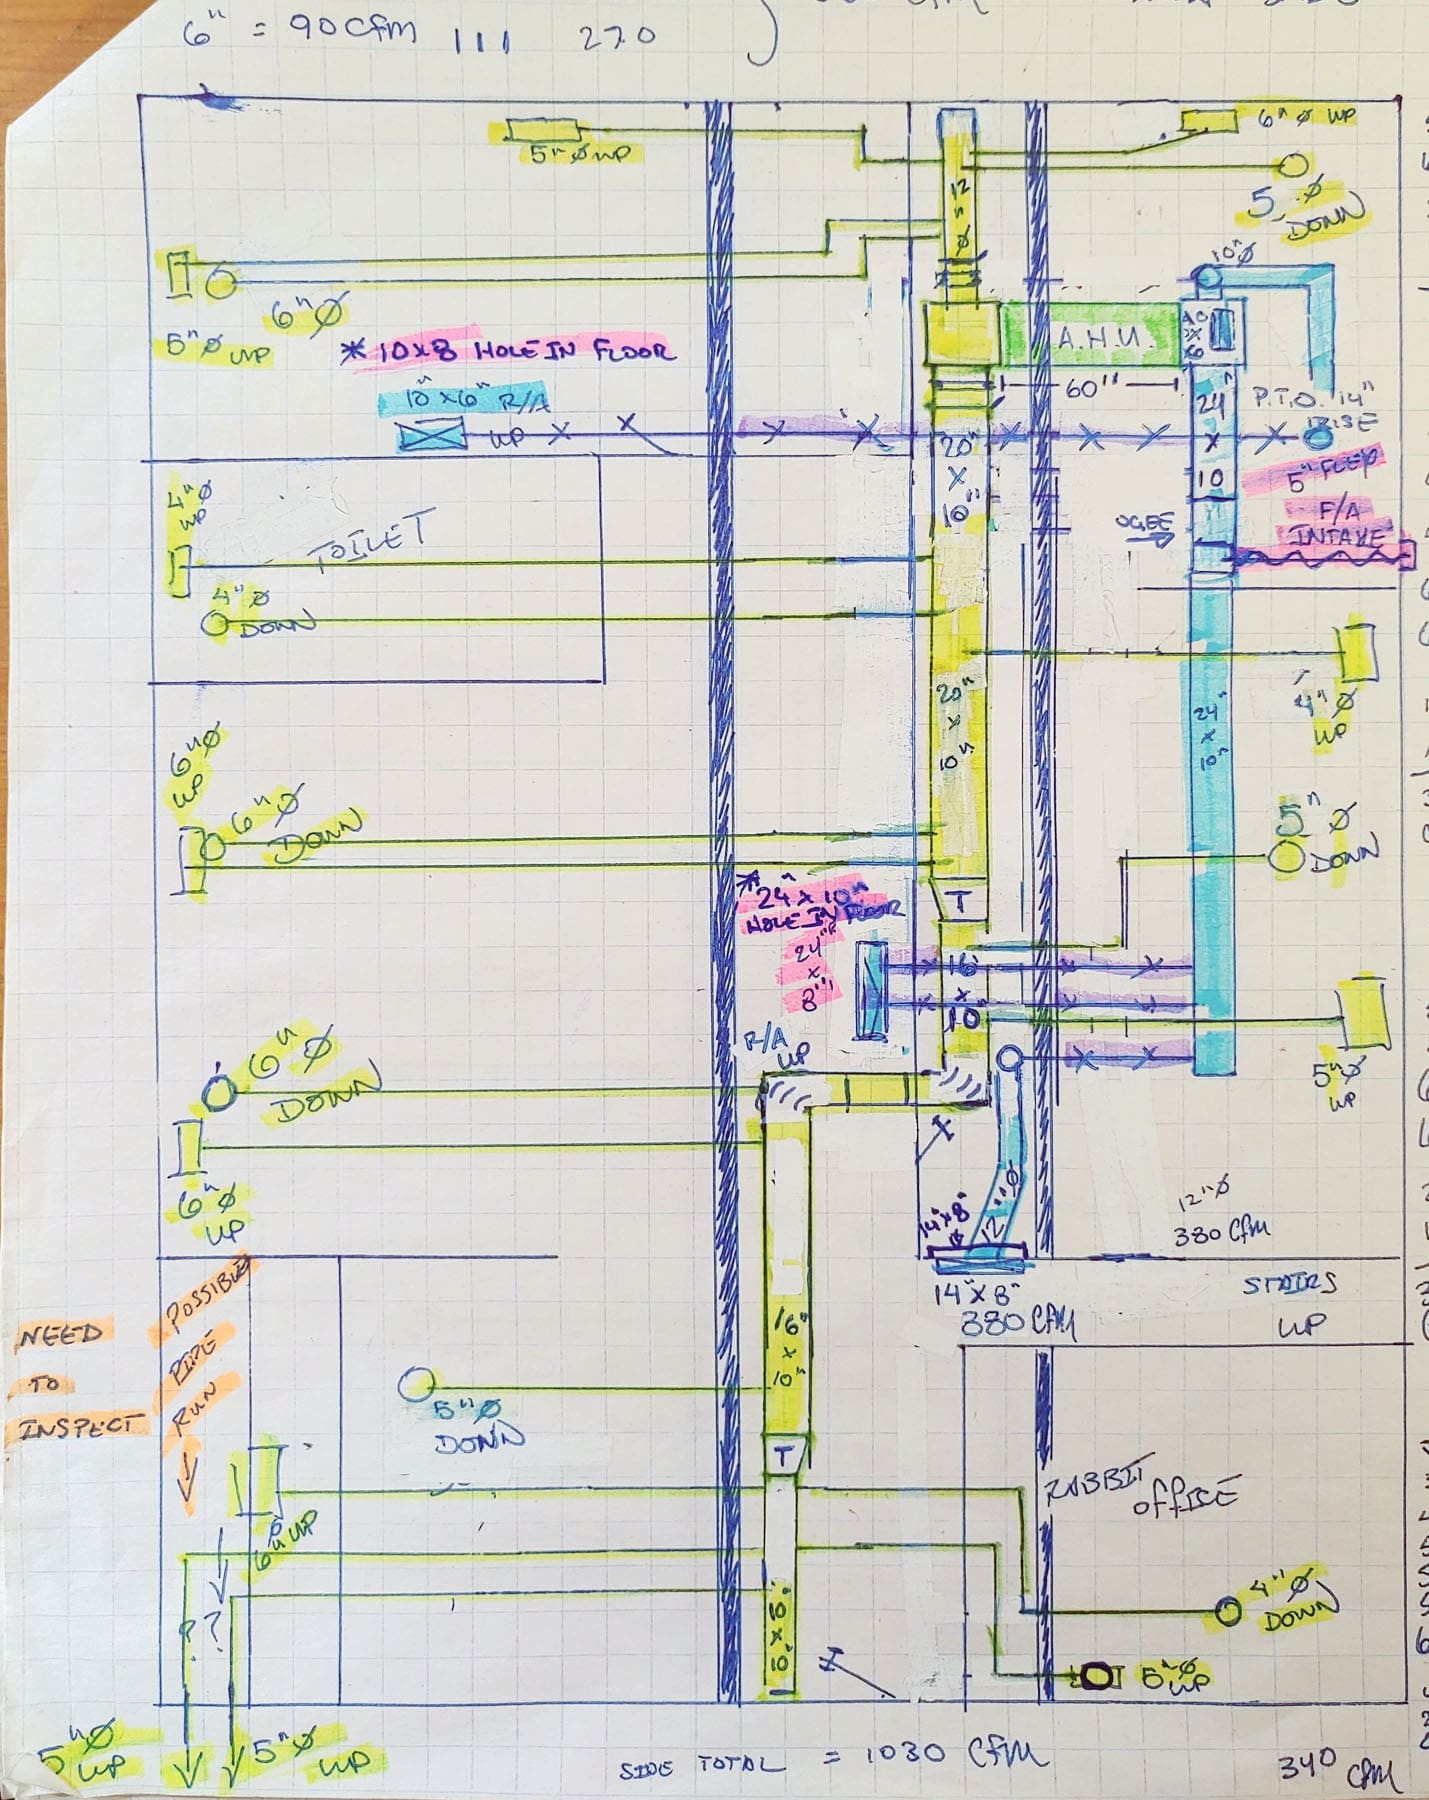 6" = 90 Cfm III 270
6"ø UP
5"ø UP
12"ø
5"ø
DOWN
10"ø
6"ø
5"ø UP
* 10x8 HOLE IN FLOOR
A.H.U.
60"
10"x6" R/A
UP
24"
x
10
P.T.O. 14"
RISE
20"
x
10"
5" FLEX
F/A
INTAKE
OGEE
4"ø
UP
TOILET
4"ø
DOWN
20"
x
10"
24"
x
10"
4"ø
UP
6"ø
UP
6"ø
DOWN
5"ø
DOWN
* 24" x 10"
HOLE IN FLOOR
24"
x
8"
T
16"
x
10"
R/A
UP
5"ø
UP
6"ø
DOWN
6"ø
UP
14"x8"
12"ø
12"ø
380 Cfm
14"x8"
380 CFM
STAIRS
UP
NEED
TO
INSPECT
POSSIBLE
PIPE
RUN
16"
x
10"
5"ø
DOWN
T
RABBIT
OFFICE
6"ø UP
? ?
10" x 10"
4"ø
DOWN
5"ø
UP
5"ø
UP
5"ø
UP
SIDE TOTAL = 1030 Cfm
340 CFM